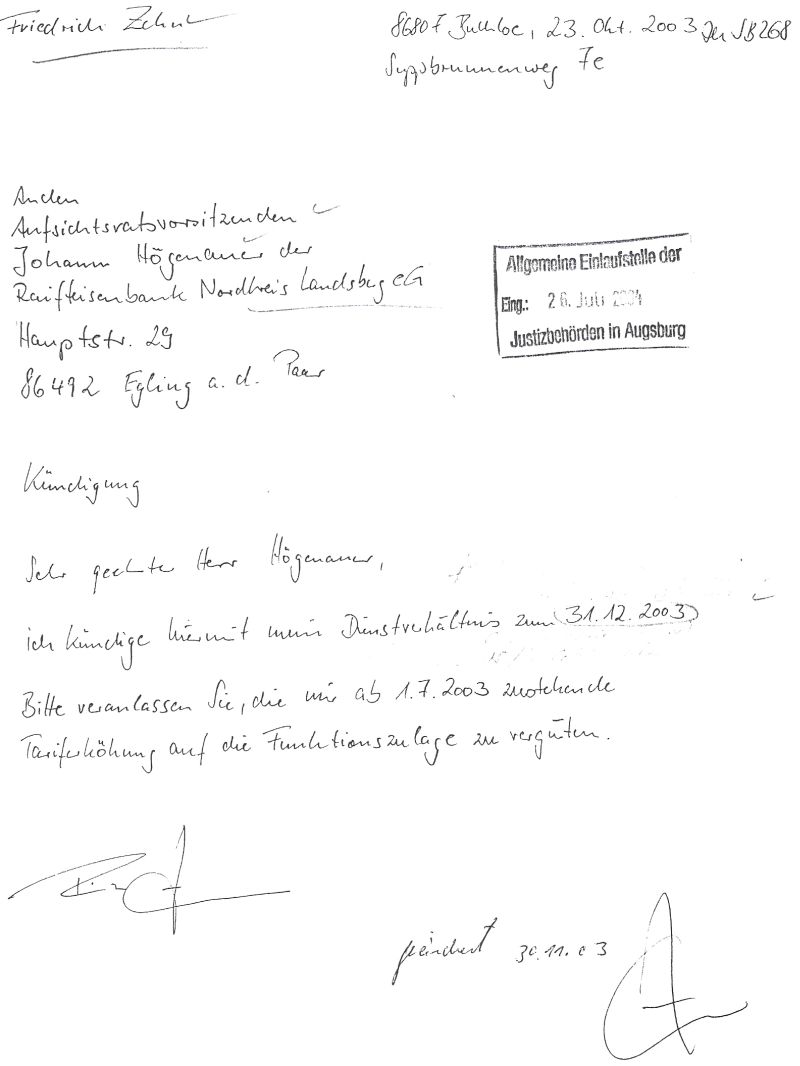 Friedrich
86807 Buchloe, 23. Okt. 2003
7e
An den
Aufsichtsratsvorsitzenden
Johann Högenauer der
Raiffeisenbank Nordkreis Landsberg eG
Hauptstr. 29
86492 Egling a. d. Paar
Allgemeine Einlaufstelle der
Eing.: 26. Juli 2004
Justizbehörden in Augsburg
Kündigung
Sehr geehrter Herr Högenauer,
ich kündige hiermit mein Dienstverhältnis zum 31.12.2003
Bitte veranlassen Sie, die mir ab 1.7.2003 zustehende
Tariferhöhung auf die Funktionszulage zu vergüten.
30.11.03